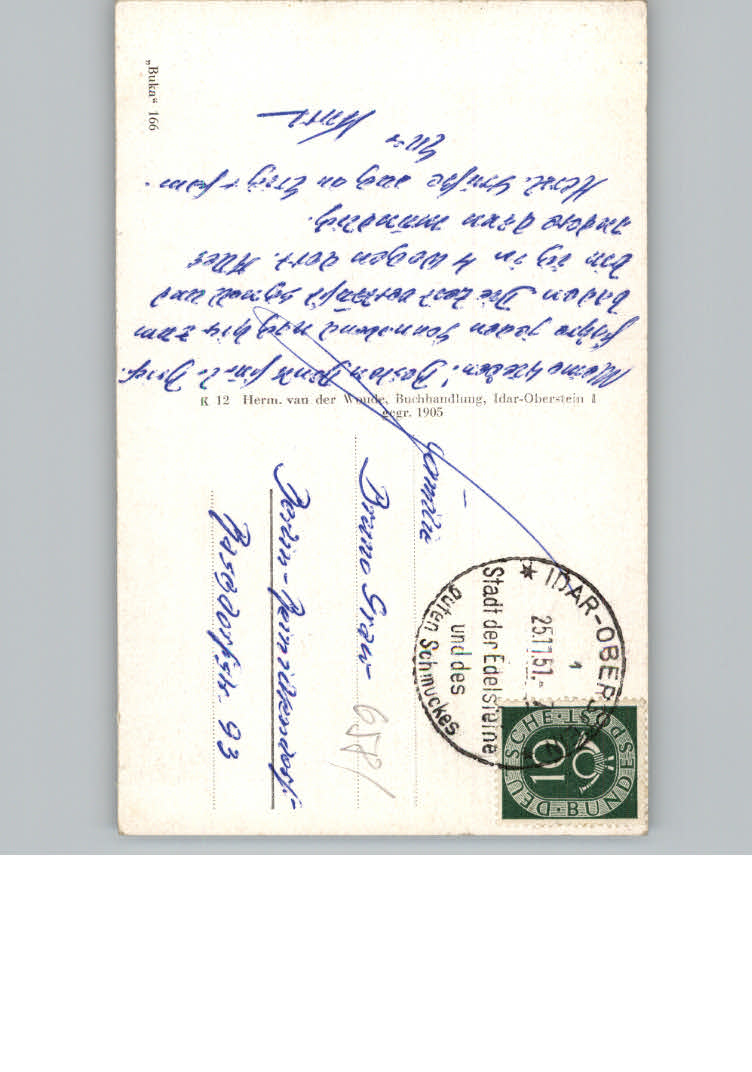 „Buka“ 166
Meine Lieben! Besten Dank für l. Brief.
Fahre jeden Sonnabend nach hier zum
baden. Die Zeit verläuft schnell und
bin ich in 4 Wochen dort. Alles
andere dann mündlich.
Herzl. Grüße auch an
Euer
K 12 Herm. van der Woude, Buchhandlung, Idar-Oberstein 1
gegr. 1905
Familie
Bruno Graw
Berlin-Reinickendorf-
93
658/
IDAR-OBERSTEIN
25.11.51.-
1
Stadt der Edelsteine
und des
guten Schmuckes
DEUTSCHE BUNDESPOST
10